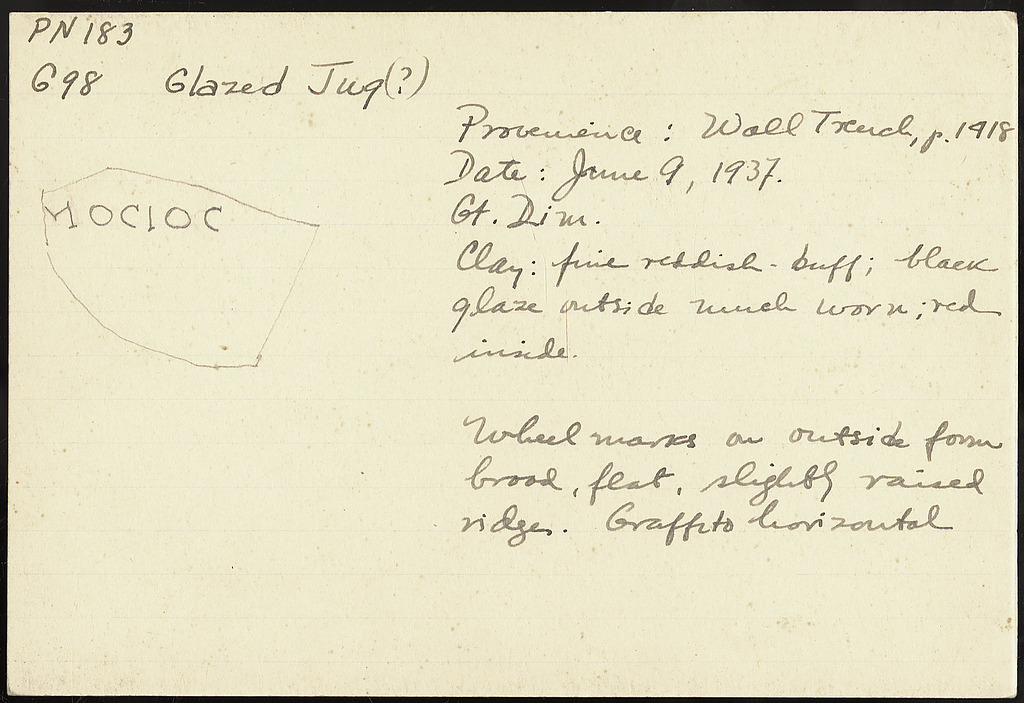 PN 183
G98 Glazed Jug (?)
Provenience: Wall Trench, p. 1418
Date: June 9, 1937.
Gt. Dim.
Clay: fine reddish-buff; black
glaze outside much worn; red
inside.
ΜΟCΙΟC
Wheel marks on outside form
broad, flat, slightly raised
ridges. Graffito horizontal